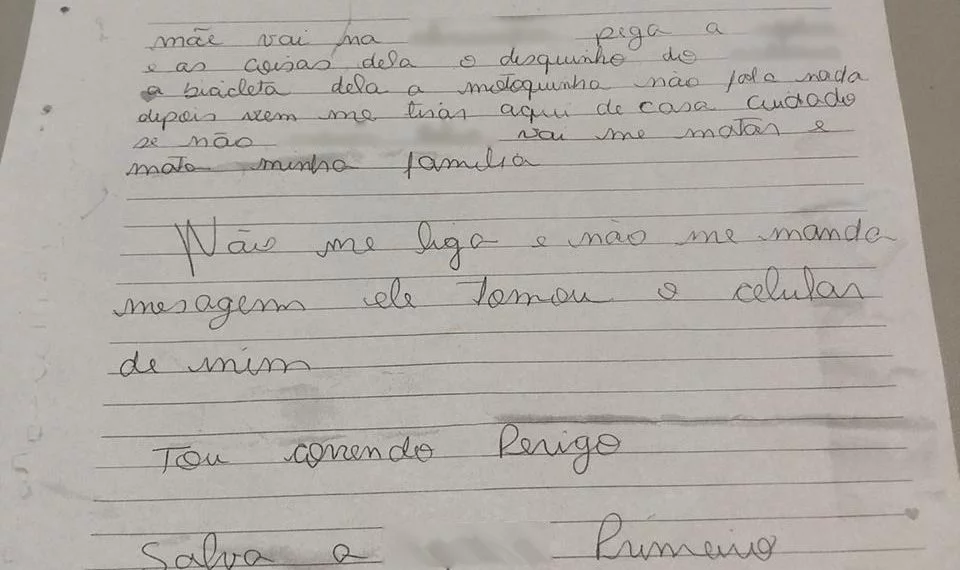 mãe vai na pega a
e as coisas dela o disquinho do
a bicicleta dela a motoquinha não fala nada
depois vem me tirar aqui de casa cuidado
se não vai me matar e
mata minha familia
Não me liga e não me manda
mesagem ele tomou o celular
de mim
Tou correndo Perigo
Salva a Primeiro